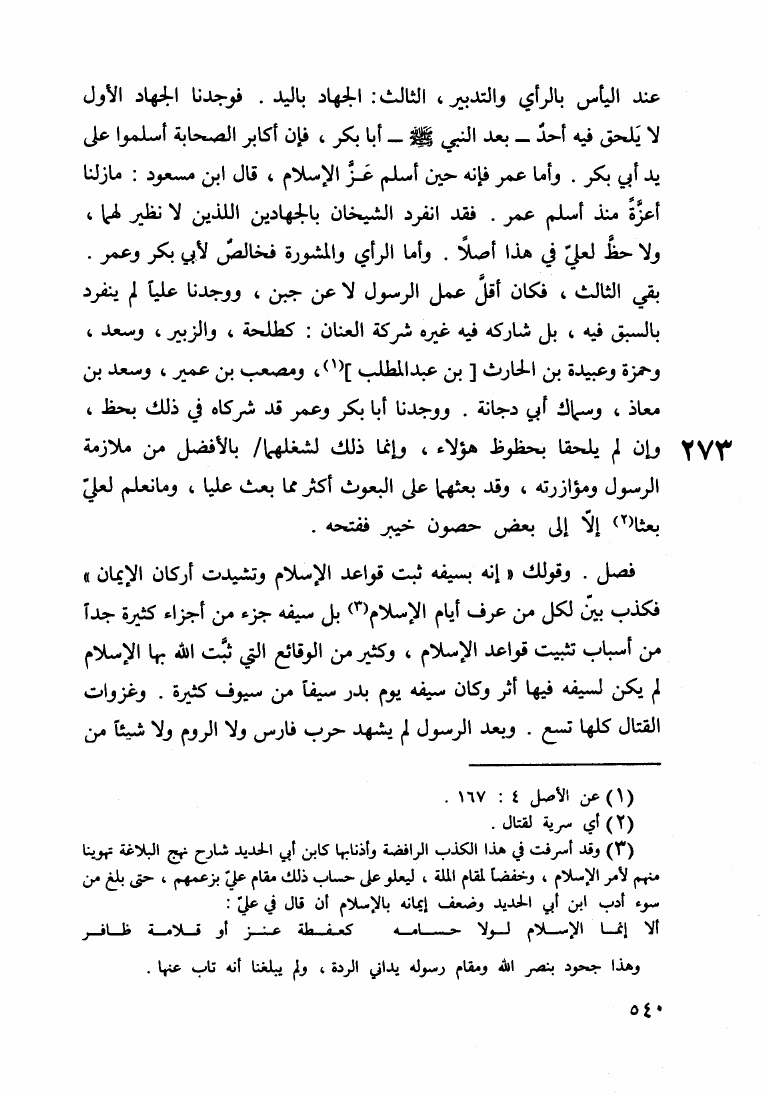 عند اليأس بالرأي والتدبير ، الثالث : الجهاد باليد . فوجدنا الجهاد الأول
لا يَلحق فيه أحدٌ ــ بعد النبي ﷺ ــ أبا بكر ، فإن أكابر الصحابة أسلموا على
يد أبي بكر . وأما عمر فإنه حين أسلم عَزَّ الإسلام ، قال ابن مسعود : مازلنا
أعزَّةً منذ أسلم عمر . فقد انفرد الشيخان بالجهادين اللذين لا نظير لهما ،
ولا حظَّ لعليّ في هذا أصلًا . وأما الرأي والمشورة فخالصٌ لأبي بكر وعمر .
بقي الثالث ، فكان أقلَّ عمل الرسول لا عن جبن ، ووجدنا علياً لم ينفرد
بالسبق فيه ، بل شاركه فيه غيره شركة العنان : كطلحة ، والزبير ، وسعد ،
وحمزة وعبيدة بن الحارث [ بن عبدالمطلب ](١) ، ومصعب بن عمير ، وسعد بن
معاذ ، وسماك أبي دجانة . ووجدنا أبا بكر وعمر قد شركاه في ذلك بحظ ،
وإن لم يلحقا بحظوظ هؤلاء ، وإنما ذلك لشغلهما/ بالأفضل من ملازمة ٢٧٣
الرسول ومؤازرته ، وقد بعثهما على البعوث أكثر مما بعث عليا ، ومانعلم لعليّ
بعثا(٢) إلّا إلى بعض حصون خيبر ففتحه .
فصل . وقولك « إنه بسيفه ثبت قواعد الإسلام وتشيدت أركان الإيمان »
فكذب بيّن لكل من عرف أيام الإسلام(٣) بل سيفه جزء من أجزاء كثيرة جداً
من أسباب تثبيت قواعد الإسلام ، وكثير من الوقائع التي ثبَّت الله بها الإسلام
لم يكن لسيفه فيها أثر وكان سيفه يوم بدر سيفاً من سيوف كثيرة . وغزوات
القتال كلها تسع . وبعد الرسول لم يشهد حرب فارس ولا الروم ولا شيئاً من
(١) عن الأصل ٤ : ١٦٧ .
(٢) أي سرية لقتال .
(٣) وقد أسرفت في هذا الكذب الرافضة وأذنابها كابن أبي الحديد شارح نهج البلاغة تهوينا
منهم لأمر الإسلام ، وخفضاً لمقام الملة ، ليعلو على حساب ذلك مقام عليّ بزعمهم ، حتى بلغ من
سوء أدب ابن أبي الحديد وضعف إيمانه بالإسلام أن قال في عليّ :
ألا إنما الإسلام لولا حسامه كعفطة عنز أو قلامة ظافر
وهذا جحود بنصر الله ومقام رسوله يداني الردة ، ولم يبلغنا أنه تاب عنها .
٥٤٠